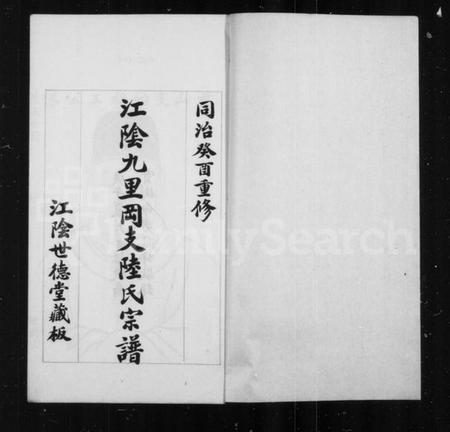 同治癸酉重修
江陰九里岡支陸氏宗譜
江陰世德堂藏板
FamilySearch